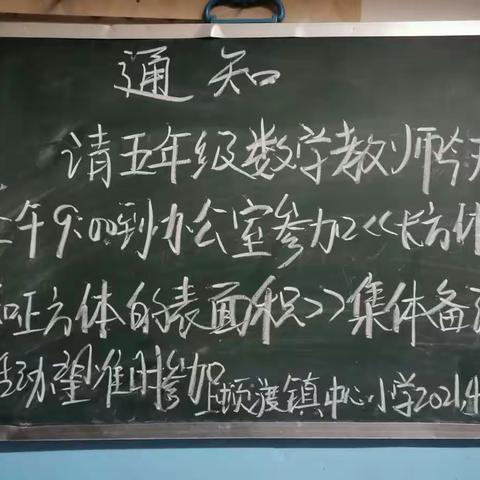 通知
请五年级数学教师今天
上午9:00到办公室参加《长方体
和正方体的表面积》集体备课
活动望准时参加
上顿渡镇中心小学2021,4